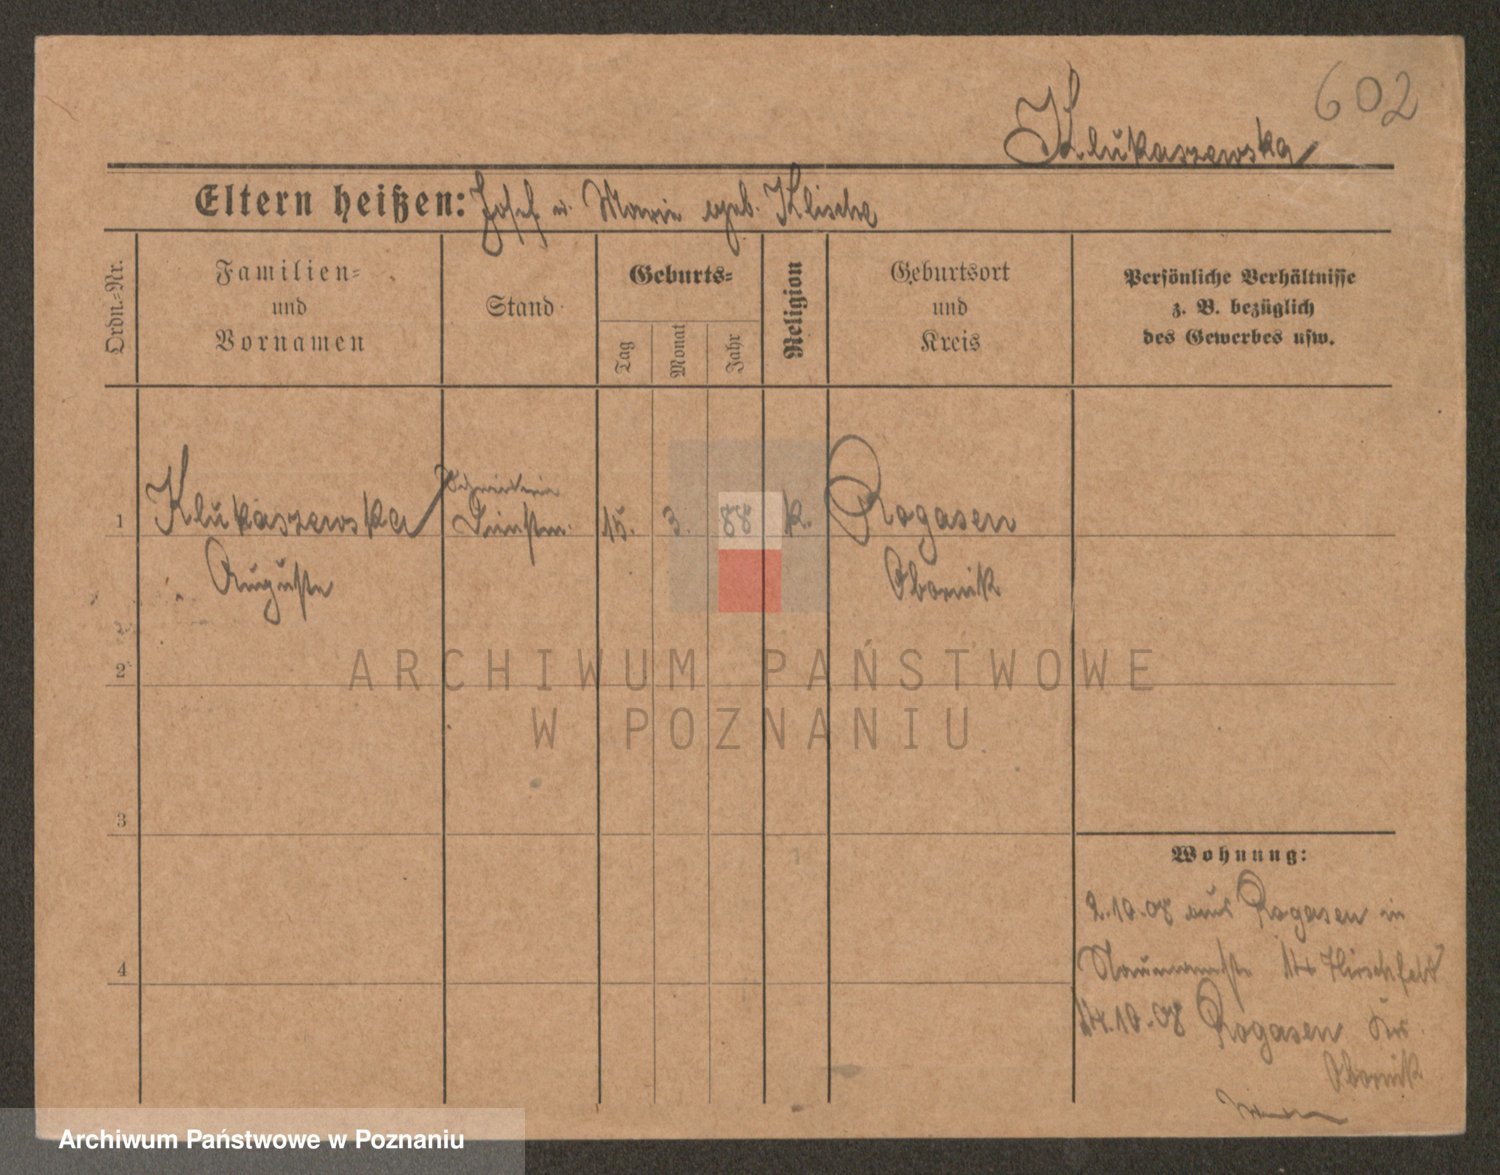 602
Klukaszewska
Eltern heißen: Josef u. Marie geb. Klische
Ordn.-Nr.
Familien-
und
Vornamen
Stand
Geburts-
Tag
Monat
Jahr
Religion
Geburtsort
und
Kreis
Persönliche Verhältnisse
z. B. bezüglich
des Gewerbes usw.
1
Klukaszewska
Auguste
Schneiderin
15. 3. 88 k. Rogasen
Obornik
2
3
4
ARCHIWUM PAŃSTWOWE
W POZNANIU
Wohnung:
2.10.08 aus Rogasen in
Naumannstr. Hirschfeld
14.10.08 Rogasen Krs.
Obornik
Archiwum Państwowe w Poznaniu